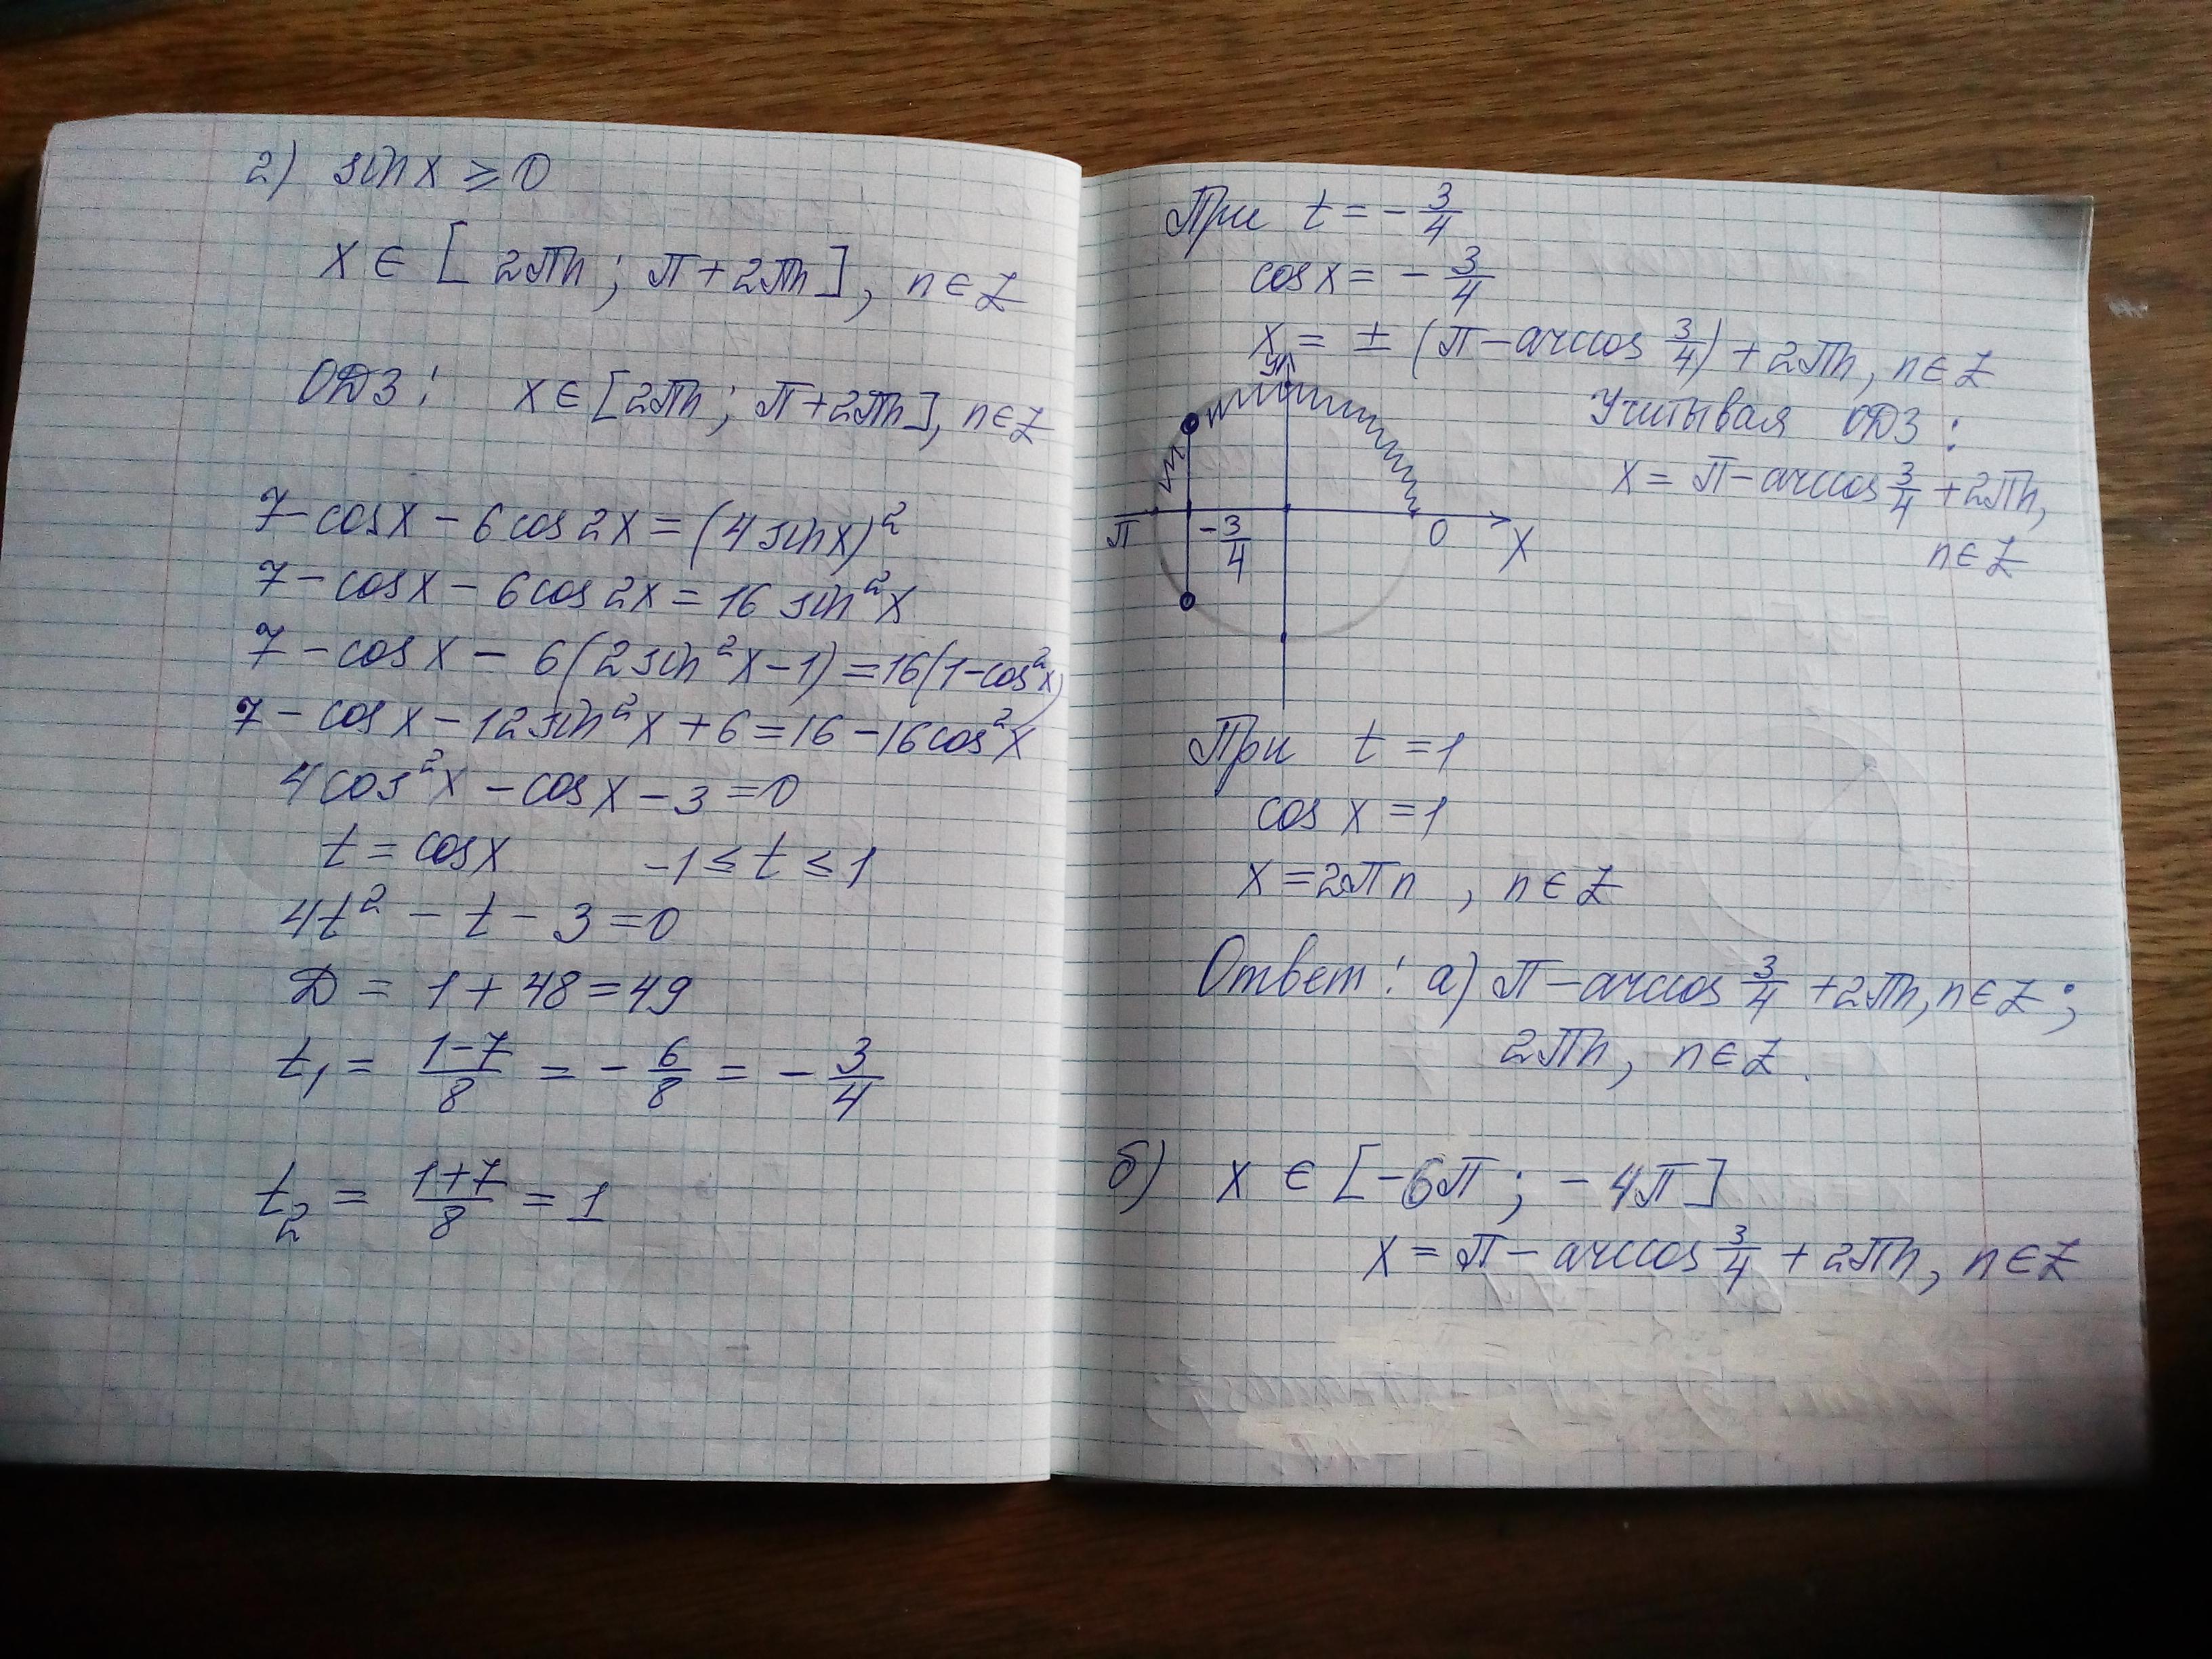 2) sin x ≥ 0
x ∈ [2πn; π + 2πn], n ∈ Z
ОДЗ: x ∈ [2πn; π + 2πn], n ∈ Z
7 - cos x - 6 cos 2x = (4 sin x)²
7 - cos x - 6 cos 2x = 16 sin² x
7 - cos x - 6(2 sin² x - 1) = 16(1 - cos² x)
7 - cos x - 12 sin² x + 6 = 16 - 16 cos² x
4 cos² x - cos x - 3 = 0
t = cos x -1 ≤ t ≤ 1
4t² - t - 3 = 0
Д = 1 + 48 = 49
t₁ = (1-7)/8 = - 6/8 = - 3/4
t₂ = (1+7)/8 = 1
При t = - 3/4
cos x = - 3/4
x = ± (π - arccos 3/4) + 2πn, n ∈ Z
Учитывая ОДЗ:
x = π - arccos 3/4 + 2πn,
n ∈ Z
y
π - 3/4 0 x
При t = 1
cos x = 1
x = 2πn, n ∈ Z
Ответ: а) π - arccos 3/4 + 2πn, n ∈ Z;
2πn, n ∈ Z.
б) x ∈ [-6π; -4π]
x = π - arccos 3/4 + 2πn, n ∈ Z